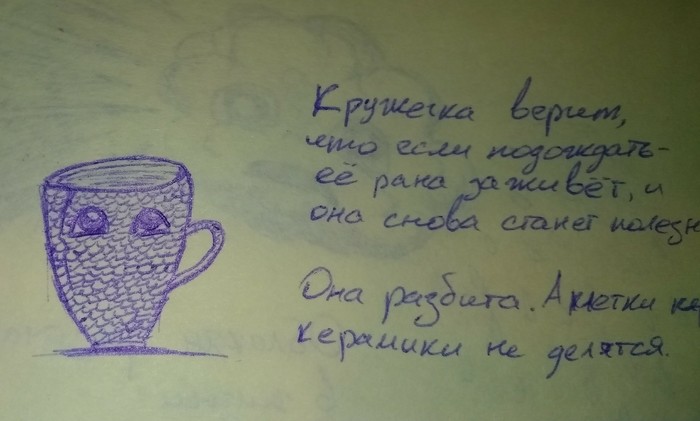 Кружечка верит,
что если подождать-
её рана заживёт, и
она снова станет полезн
Она разбита. А клетки ке
керамики не делятся.